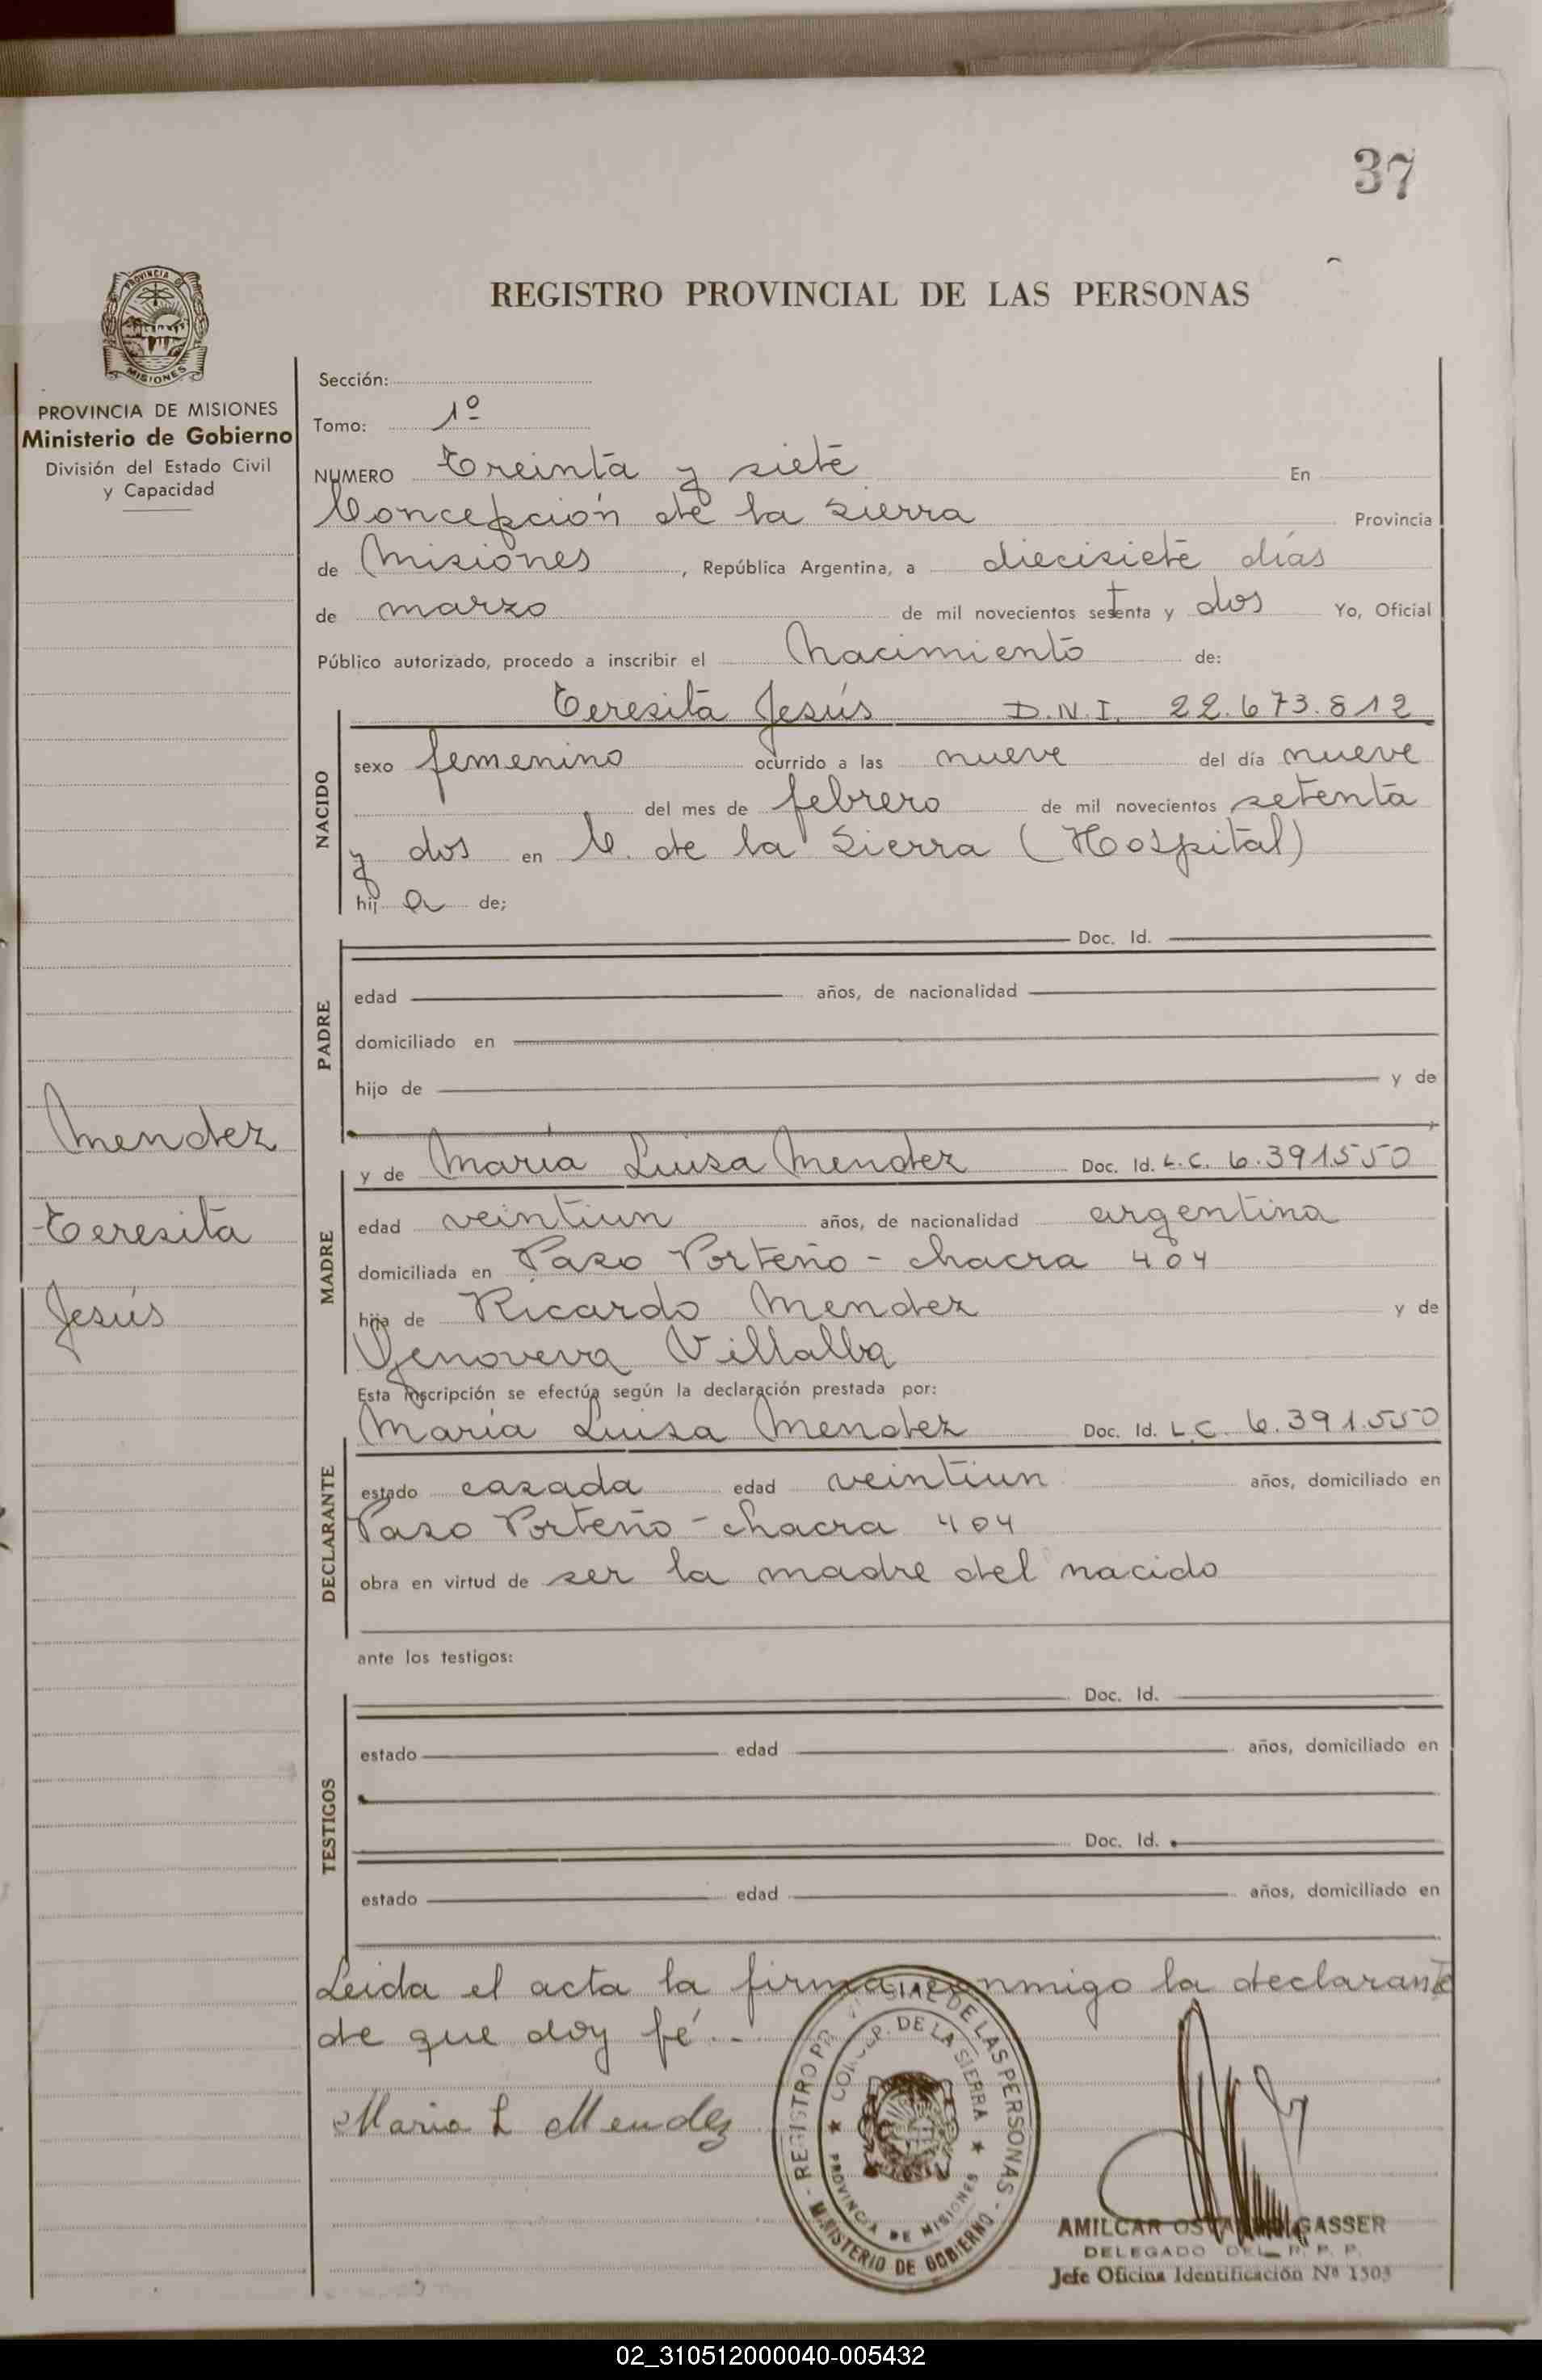 37
REGISTRO PROVINCIAL DE LAS PERSONAS
PROVINCIA DE MISIONES
Ministerio de Gobierno
División del Estado Civil
y Capacidad
Sección:
Tomo: 1º
NUMERO Treinta y siete En
Concepción de la Sierra Provincia
de Misiones, República Argentina, a diecisiete días
de marzo de mil novecientos setenta y dos Yo, Oficial
Público autorizado, procedo a inscribir el Nacimiento de:
NACIDO
Teresita Jesús D.N.I. 22.673.812
sexo femenino ocurrido a las nueve del día nueve
del mes de febrero de mil novecientos setenta
y dos en C. de la Sierra (Hospital)
hij a de;
PADRE
Doc. Id.
edad años, de nacionalidad
domiciliado en
hijo de y de
Mendez
Teresita
Jesús
MADRE
y de María Luisa Mendez Doc. Id. L.C. 6.391550
edad veintiun años, de nacionalidad argentina
domiciliada en Paso Porteño - chacra 404
hija de Ricardo Mendez y de
Genoveva Villalba
Esta inscripción se efectúa según la declaración prestada por:
DECLARANTE
María Luisa Mendez Doc. Id. L.C. 6.391.550
estado casada edad veintiun años, domiciliado en
Paso Porteño - chacra 404
obra en virtud de ser la madre del nacido
ante los testigos:
TESTIGOS
Doc. Id.
estado edad años, domiciliado en
Doc. Id.
estado edad años, domiciliado en
Leida el acta la firma conmigo la declarante
de que doy fé..-
Maria L Mendez
REGISTRO PROVINCIAL DE LAS PERSONAS - MINISTERIO DE GOBIERNO -
CONCEP. DE LA SIERRA ★ PROVINCIA DE MISIONES ★
AMILCAR GASSER
DELEGADO DEL R. P. P.
Jefe Oficina Identificación Nº 1503
02_310512000040-005432